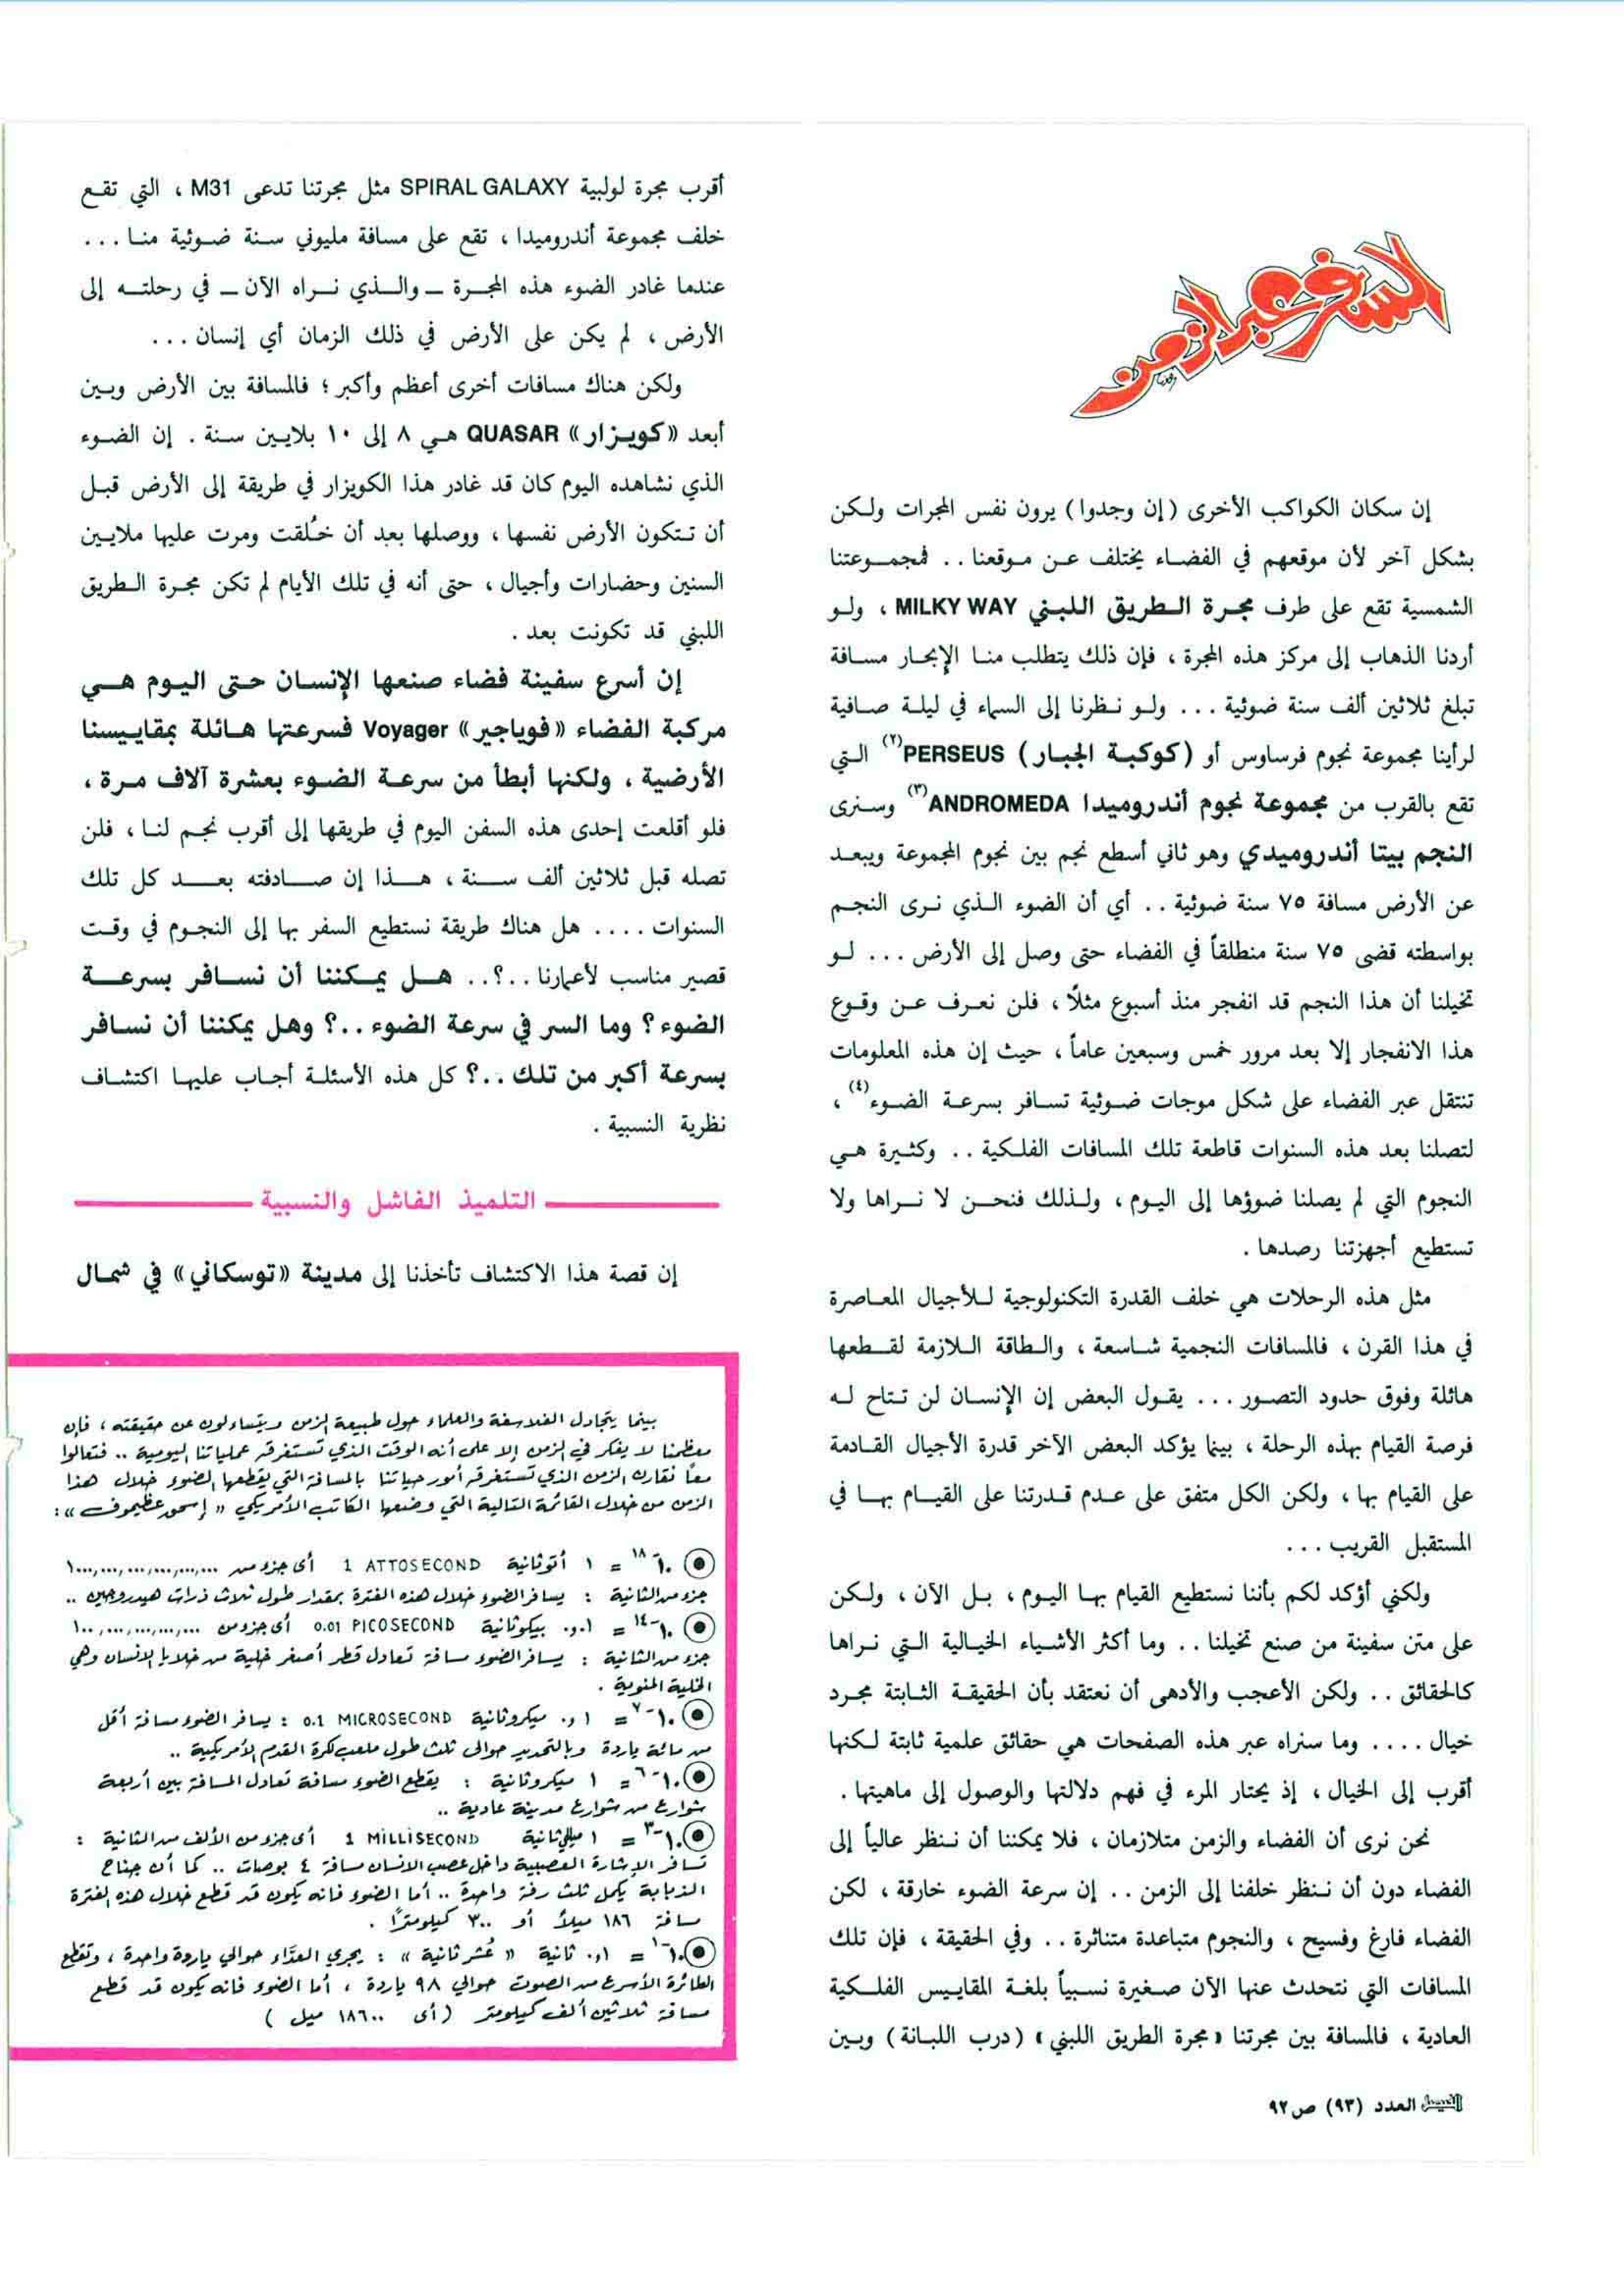 السفر عبر الزمن
إن سكان الكواكب الأخرى (إن وجدوا) يرون نفس المجرات ولكن
بشكل آخر لأن موقعهم في الفضاء يختلف عن موقعنا .. فمجموعتنا
الشمسية تقع على طرف مجرة الطريق اللبني MILKY WAY ، ولو
أردنا الذهاب إلى مركز هذه المجرة ، فإن ذلك يتطلب منا الإبحار مسافة
تبلغ ثلاثين ألف سنة ضوئية ... ولو نظرنا إلى السماء في ليلة صافية
لرأينا مجموعة نجوم فرساوس أو (كوكبة الجبار) PERSEUS(٢) التي
تقع بالقرب من مجموعة نجوم أندروميدا ANDROMEDA(٣) وسنرى
النجم بيتا أندروميدي وهو ثاني أسطع نجم بين نجوم المجموعة ويبعد
عن الأرض مسافة ٧٥ سنة ضوئية .. أي أن الضوء الذي نرى النجم
بواسطته قضى ٧٥ سنة منطلقاً في الفضاء حتى وصل إلى الأرض ... لو
تخيلنا أن هذا النجم قد انفجر منذ أسبوع مثلًا ، فلن نعرف عن وقوع
هذا الانفجار إلا بعد مرور خمس وسبعين عاماً ، حيث إن هذه المعلومات
تنتقل عبر الفضاء على شكل موجات ضوئية تسافر بسرعة الضوء(٤) ،
لتصلنا بعد هذه السنوات قاطعة تلك المسافات الفلكية .. وكثيرة هي
النجوم التي لم يصلنا ضوؤها إلى اليوم ، ولذلك فنحن لا نراها ولا
تستطيع أجهزتنا رصدها .
مثل هذه الرحلات هي خلف القدرة التكنولوجية للأجيال المعاصرة
في هذا القرن ، فالمسافات النجمية شاسعة ، والطاقة اللازمة لقطعها
هائلة وفوق حدود التصور ... يقول البعض إن الإنسان لن تتاح له
فرصة القيام بهذه الرحلة ، بينما يؤكد البعض الآخر قدرة الأجيال القادمة
على القيام بها ، ولكن الكل متفق على عدم قدرتنا على القيام بها في
المستقبل القريب ...
ولكني أؤكد لكم بأننا نستطيع القيام بها اليوم ، بل الآن ، ولكن
على متن سفينة من صنع تخيلنا .. وما أكثر الأشياء الخيالية التي نراها
كالحقائق .. ولكن الأعجب والأدهى أن نعتقد بأن الحقيقة الثابتة مجرد
خيال .... وما سنراه عبر هذه الصفحات هي حقائق علمية ثابتة لكنها
أقرب إلى الخيال ، إذ يحتار المرء في فهم دلالتها والوصول إلى ماهيتها .
نحن نرى أن الفضاء والزمن متلازمان ، فلا يمكننا أن ننظر عالياً إلى
الفضاء دون أن ننظر خلفنا إلى الزمن .. إن سرعة الضوء خارقة ، لكن
الفضاء فارغ وفسيح ، والنجوم متباعدة متناثرة .. وفي الحقيقة ، فإن تلك
المسافات التي نتحدث عنها الآن صغيرة نسبياً بلغة المقاييس الفلكية
العادية ، فالمسافة بين مجرتنا «مجرة الطريق اللبني» (درب اللبانة) وبين
أقرب مجرة لولبية SPIRAL GALAXY مثل مجرتنا تدعى M31 ، التي تقع
خلف مجموعة أندروميدا ، تقع على مسافة مليوني سنة ضوئية منا ...
عندما غادر الضوء هذه المجرة ــ والذي نراه الآن ــ في رحلته إلى
الأرض ، لم يكن على الأرض في ذلك الزمان أي إنسان ...
ولكن هناك مسافات أخرى أعظم وأكبر ؛ فالمسافة بين الأرض وبين
أبعد «كويزار» QUASAR هي ٨ إلى ١٠ بلايين سنة . إن الضوء
الذي نشاهده اليوم كان قد غادر هذا الكويزار في طريقة إلى الأرض قبل
أن تتكون الأرض نفسها ، ووصلها بعد أن خُلقت ومرت عليها ملايين
السنين وحضارات وأجيال ، حتى أنه في تلك الأيام لم تكن مجرة الطريق
اللبني قد تكونت بعد .
إن أسرع سفينة فضاء صنعها الإنسان حتى اليوم هي
مركبة الفضاء «فوياجير» Voyager فسرعتها هائلة بمقاييسنا
الأرضية ، ولكنها أبطأ من سرعة الضوء بعشرة آلاف مرة ،
فلو أقلعت إحدى هذه السفن اليوم في طريقها إلى أقرب نجم لنا ، فلن
تصله قبل ثلاثين ألف سنة ، هذا إن صادفته بعد كل تلك
السنوات .... هل هناك طريقة نستطيع السفر بها إلى النجوم في وقت
قصير مناسب لأعمارنا ..؟.. هل يمكننا أن نسافر بسرعة
الضوء؟ وما السر في سرعة الضوء ..؟ وهل يمكننا أن نسافر
بسرعة أكبر من تلك ..؟ كل هذه الأسئلة أجاب عليها اكتشاف
نظرية النسبية .
التلميذ الفاشل والنسبية
إن قصة هذا الاكتشاف تأخذنا إلى مدينة «توسكاني» في شمال
بينما يتجادل الفلاسفة والعلماء حول طبيعة الزمن ويتساءلون عن حقيقته ، فإن
معظمنا لا يفكر في الزمن إلا على أنه الوقت الذي تستغرقه عملياتنا اليومية .. فتعالوا
معاً نقارن الزمن الذي تستغرقه أمور حياتنا بالمسافة التي يقطعها الضوء خلال هذا
الزمن من خلال القائمة التالية التي وضعها الكاتب الأمريكي «إسحق عظيموف» :
١٠-١٨ = ١ أتوثانية 1 ATTOSECOND أى جزء من ١٠٠٠,٠٠٠,٠٠٠,٠٠٠,٠٠٠,٠٠٠
جزء من الثانية : يسافر الضوء خلال هذه الفترة بمقدار طول ثلاث ذرات هيدروجين ..
١٠-١٤ = ٠١و. بيكوثانية 0.01 PICOSECOND أى جزء من ١٠٠,٠٠٠,٠٠٠,٠٠٠,٠٠٠
جزء من الثانية : يسافر الضوء مسافة تعادل قطر أصغر خلية من خلايا الإنسان وهي
الخلية المنوية .
١٠-٧ = ١و. ميكروثانية 0.1 MICROSECOND : يسافر الضوء مسافة أقل
من مائة ياردة وبالتحديد حوالى ثلث طول ملعب كرة القدم الأمريكية ..
١٠-٦ = ١ ميكروثانية : يقطع الضوء مسافة تعادل المسافة بين أربعة
شوارع من شوارع مدينة عادية ..
١٠-٣ = ١ ميللي ثانية 1 MILLISECOND أى جزء من الألف من الثانية :
تسافر الإشارة العصبية داخل عصب الانسان مسافة ٤ بوصات .. كما أن جناح
الذبابة يكمل ثلث رفة واحدة .. أما الضوء فانه يكون قد قطع خلال هذه الفترة
مسافة ١٨٦ ميلاً أو ٣٠٠ كيلومترًا .
١٠-١ = ١و. ثانية «عُشر ثانية» : يجري العدَّاء حوالي ياردة واحدة ، وتقطع
الطائرة الأسرع من الصوت حوالي ٩٨ ياردة ، أما الضوء فانه يكون قد قطع
مسافة ثلاثين ألف كيلومتر (أى ١٨٦٠٠ ميل)
الفيصل العدد (٩٣) ص ٩٢